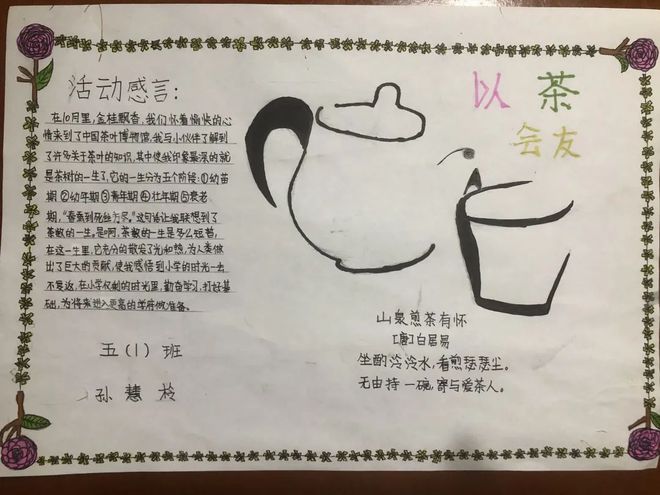 活动感言：
在10月里，金桂飘香，我们怀着愉快的心
情来到了中国茶叶博物馆，我与小伙伴了解到
了许多关于茶叶的知识，其中使我印象最深的就
是茶树的一生了，它的一生分为五个阶段：①幼苗
期②幼年期③青年期④壮年期⑤衰老
期，“春蚕到死丝方尽。”这句话让我联想到了
茶树的一生。是啊，茶树的一生是多么短暂，
在这一生里，它充分的散发了光和热，为人类做
出了巨大的贡献，使我感悟到小学的时光一去
不复返，在小学仅剩的时光里，勤奋学习，打好基
础，为将来进入更高的学府做准备。
五（1）班
孙慧
以茶
会友
山泉煎茶有怀
[唐]白居易
坐酌泠泠水，看煎瑟瑟尘。
无由持一碗，寄与爱茶人。